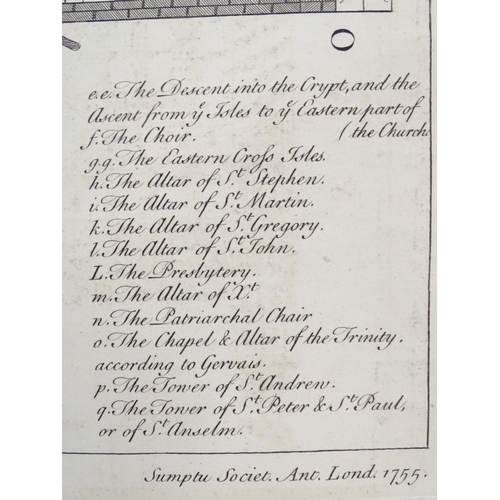 O
e.e. The Descent into the Crypt, and the
Ascent from yͤ Isles to yͤ Eastern part of
f. The Choir. (the Church
g.g. The Eastern Croſs Isles.
h. The Altar of S.ᵗ Stephen.
i. The Altar of S.ᵗ Martin.
k. The Altar of S.ᵗ Gregory.
l. The Altar of S.ᵗ John.
L. The Presbytery.
m. The Altar of X.ᵗ
n. The Patriarchal Chair
o. The Chapel & Altar of the Trinity.
according to Gervais.
p. The Tower of S.ᵗ Andrew.
q. The Tower of S.ᵗ Peter & S.ᵗ Paul,
or of S.ᵗ Anselm.
Sumptu Societ. Ant. Lond. 1755.